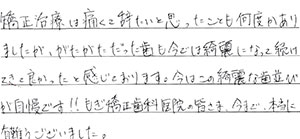 矯正治療は痛くて辞たいと思ったことも何度かあり
ましたが、がたがただった歯も今では綺麗になって続け
てきて良かったと感じております。今はこの綺麗な歯並び
が自慢です!!もぎ矯正歯科医院の皆さま、今まで、本当に
有難うございました。